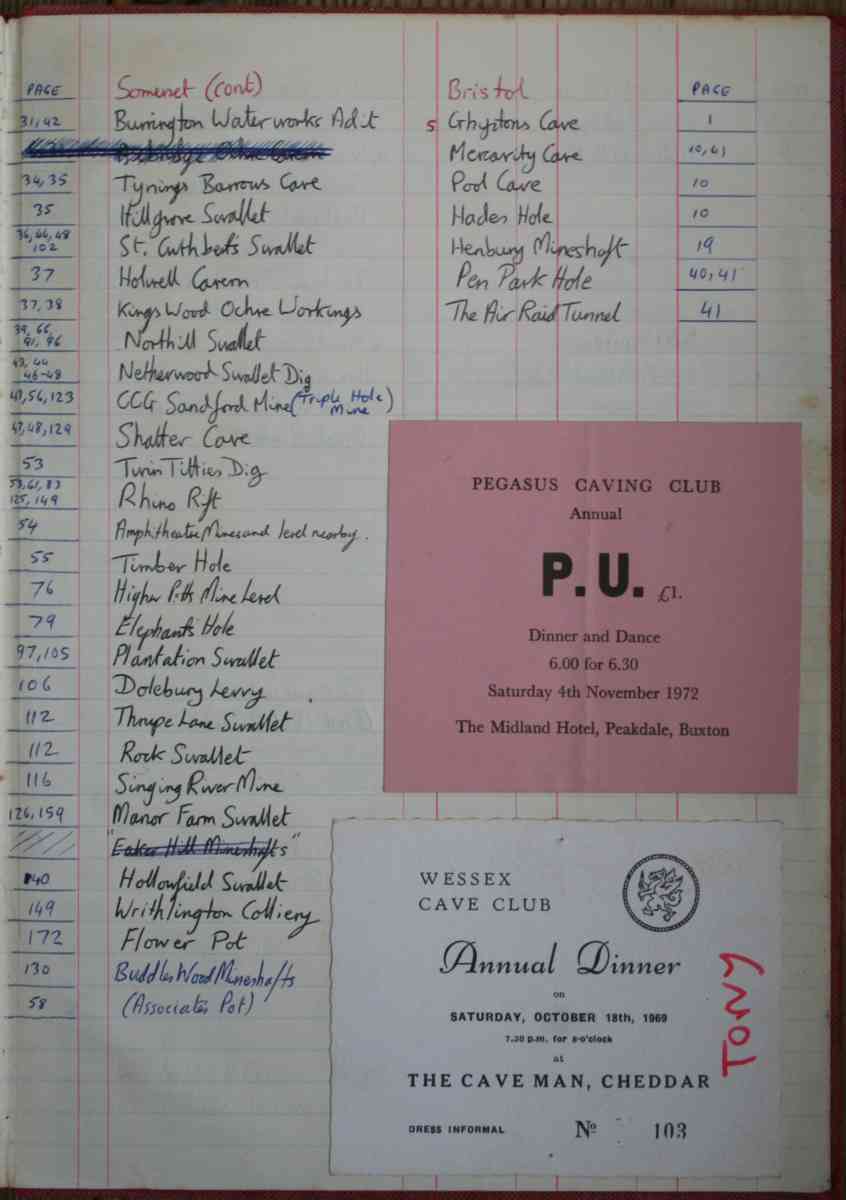 PAGE Somerset (cont)
31,42 Burrington Waterworks Adit
34,35 Tynings Barrows Cave
35 Hillgrove Swallet
36,46,48
102 St. Cuthberts Swallet
37 Holwell Cavern
37,38 Kings Wood Ochre Workings
39, 66,
91, 96 Northill Swallet
43, 44
46-48 Netherwood Swallet Dig
47,56,123 CCG Sandford Mine (Triple Hole Mine)
47,48,129 Shatter Cave
53 Twin Titties Dig
53,61,83
125,149 Rhino Rift
54 Amphitheatre Mines and level nearby.
55 Timber Hole
76 Higher Pitts Mine Level
79 Elephants Hole
97,105 Plantation Swallet
106 Dolebury Levvy
112 Thrupe Lane Swallet
112 Rock Swallet
116 Singing River Mine
126,159 Manor Farm Swallet
"Eaker Hill Mineshafts"
140 Hollowfield Swallet
149 Writhlington Colliery
172 Flower Pot
130 Buddles Wood Mineshafts
58 (Associates Pot)
Bristol PAGE
5 Ghystons Cave 1
Mercavity Cave 10,41
Pool Cave 10
Hades Hole 10
Henbury Mineshaft 19
Pen Park Hole 40,41
The Air Raid Tunnel 41
PEGASUS CAVING CLUB
Annual
P.U. £1.
Dinner and Dance
6.00 for 6.30
Saturday 4th November 1972
The Midland Hotel, Peakdale, Buxton
WESSEX
CAVE CLUB
Annual Dinner
on
SATURDAY, OCTOBER 18th, 1969
7.30 p.m. for 8-o'clock
at
THE CAVE MAN, CHEDDAR
DRESS INFORMAL No 103
TONY